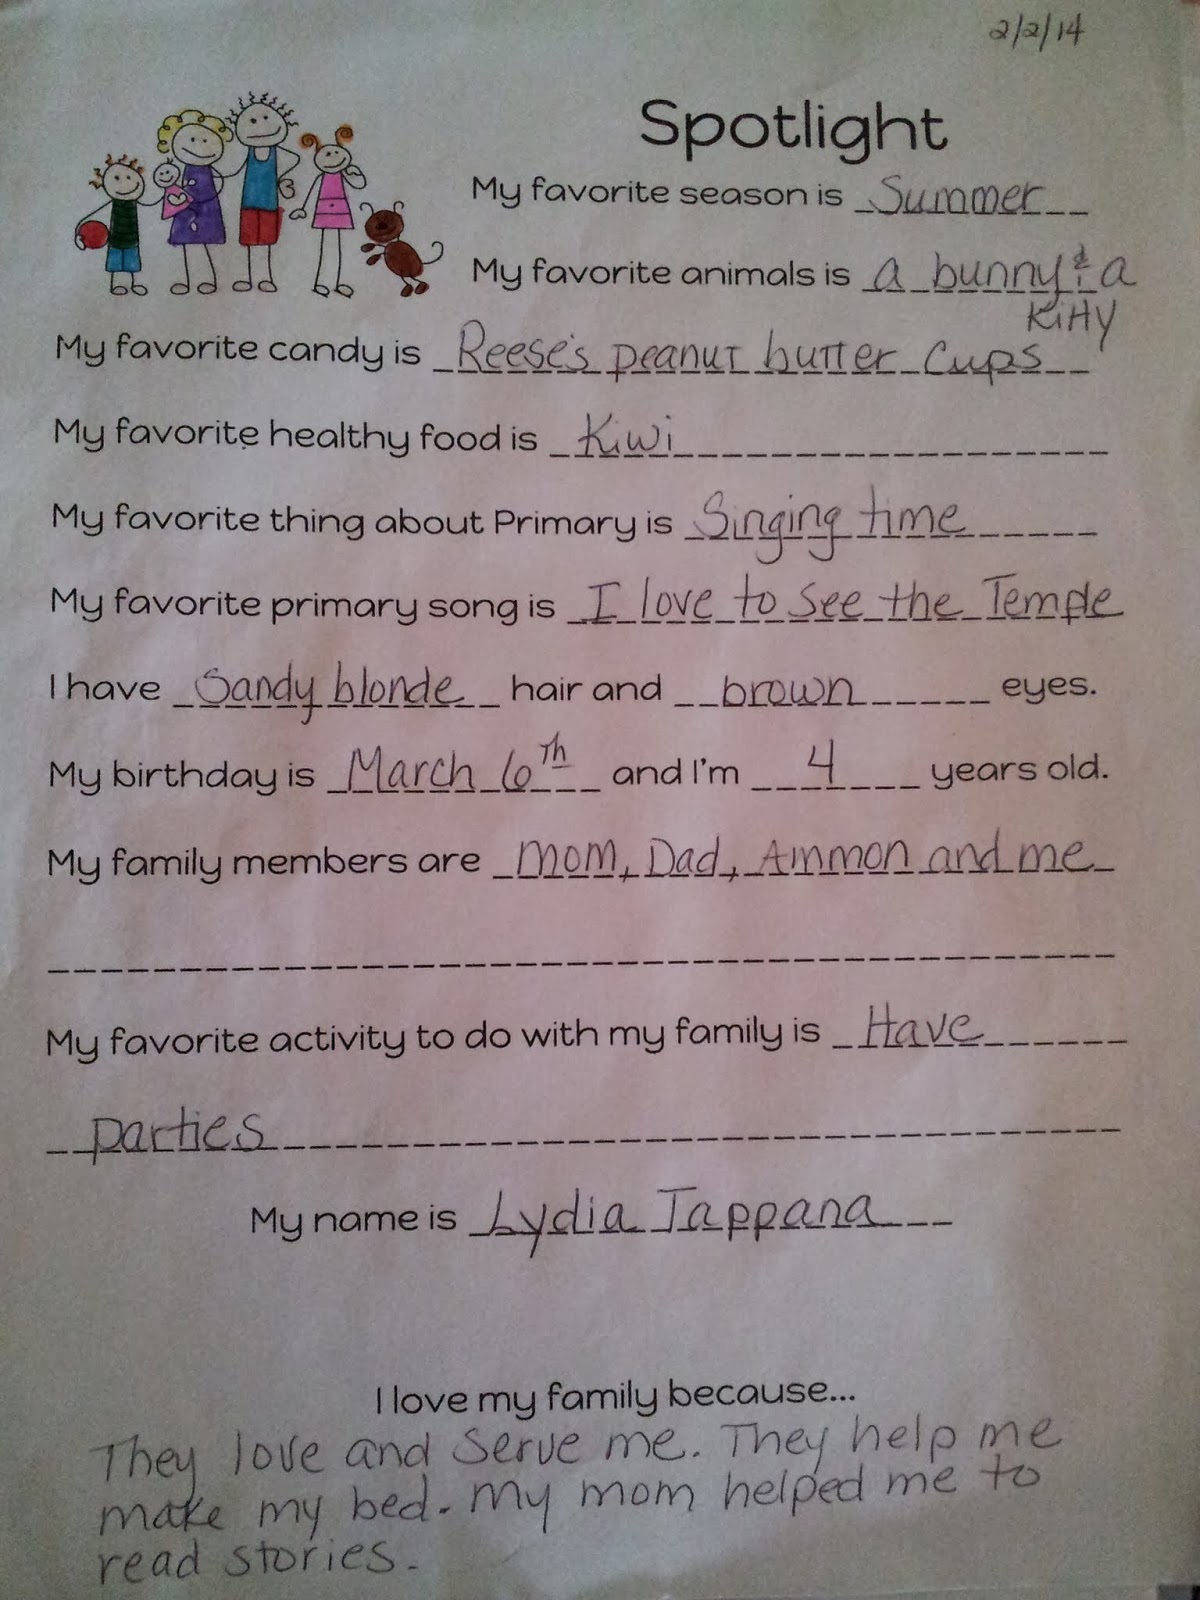 2/2/14
Spotlight
My favorite season is Summer
My favorite animals is a bunny & a
Kitty
My favorite candy is Reese's peanut butter cups
My favorite healthy food is Kiwi
My favorite thing about Primary is Singing time
My favorite primary song is I love to see the Temple
I have Sandy blonde hair and brown eyes.
My birthday is March 6th and I'm 4 years old.
My family members are mom, Dad, Ammon and me
My favorite activity to do with my family is Have
parties
My name is Lydia Tappana
I love my family because...
They love and serve me. They help me
make my bed. My mom helped me to
read stories.